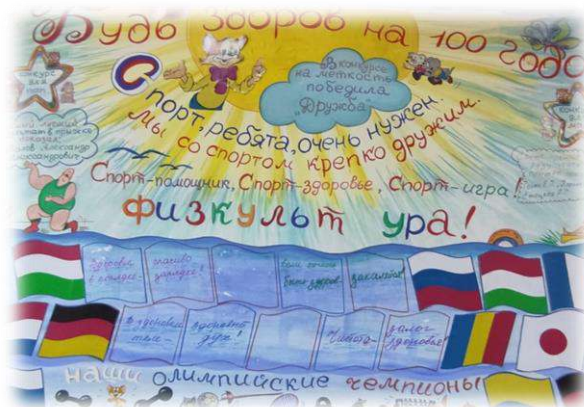 Будь здоров на 100 годо
В конкурсе
на меткость
победила
"Дружба"
Спорт, ребята, очень нужен.
Мы со спортом крепко дружим.
Спорт-помощник, Спорт-здоровье, Спорт-игра!
Физкульт ура!
Здоровье
в порядке-
спасибо
зарядке!
быть здоров
закаляйся!
В здоровом
теле-
здоровый
дух!
Чистота-
залог
здоровья!
наши олимпийские чемпионы